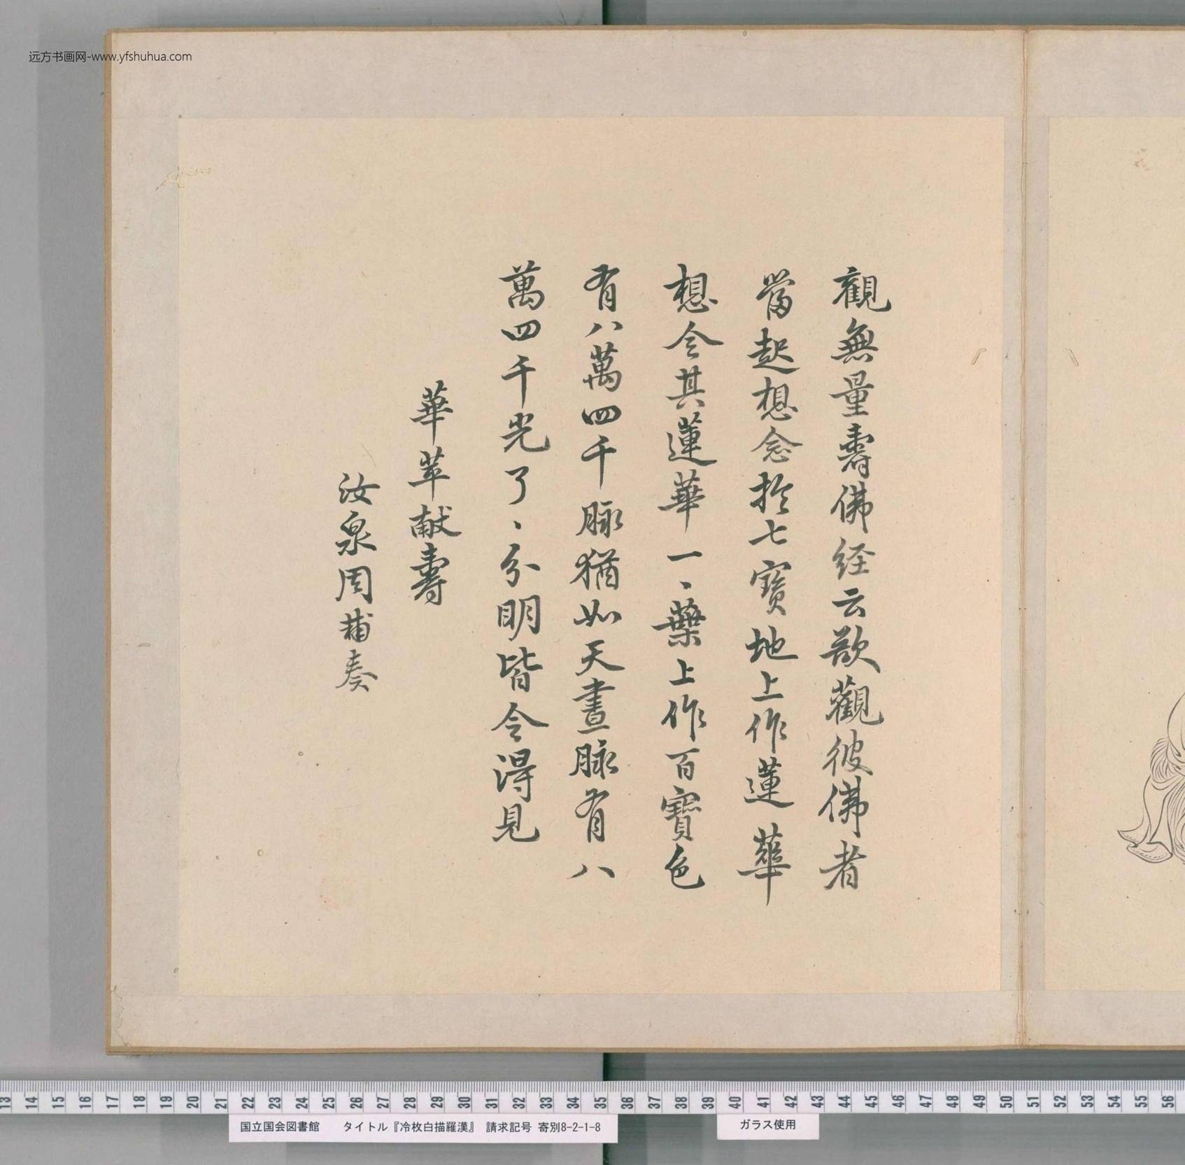 远方书画网-www.yfshuhua.com
觀無量壽佛経云欲觀彼佛者
當起想念於七寶地上作蓮華
想令其蓮華一丶葉上作百寶色
有八萬四千脉猶如天畫脉有八
萬四千光了丶分明皆令得見
華苹献壽
汝泉周輔奏
13 14 15 16 17 18 19 20 21 22 23 24 25 26 27 28 29 30 31 32 33 34 35 36 37 38 39 40 41 42 43 44 45 46 47 48 49 50 51 52 53 54 55 56
国立国会図書館 タイトル『冷枚白描羅漢』 請求記号 寄別8-2-1-8
ガラス使用